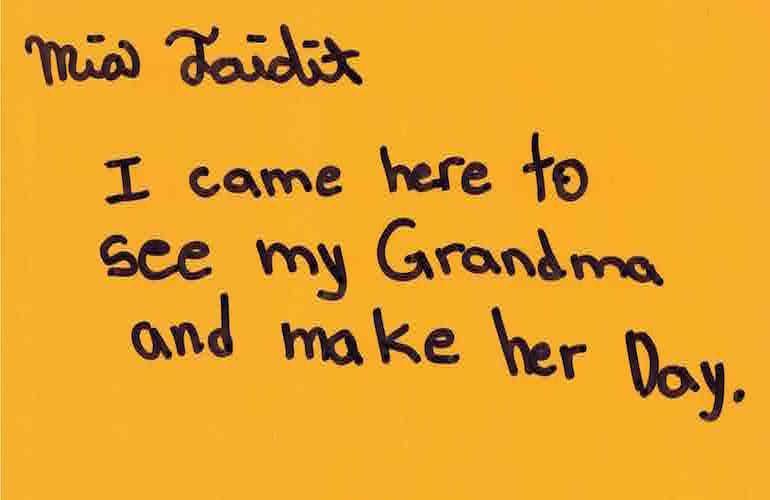 Mia Taidit
I came here to
see my Grandma
and make her Day.